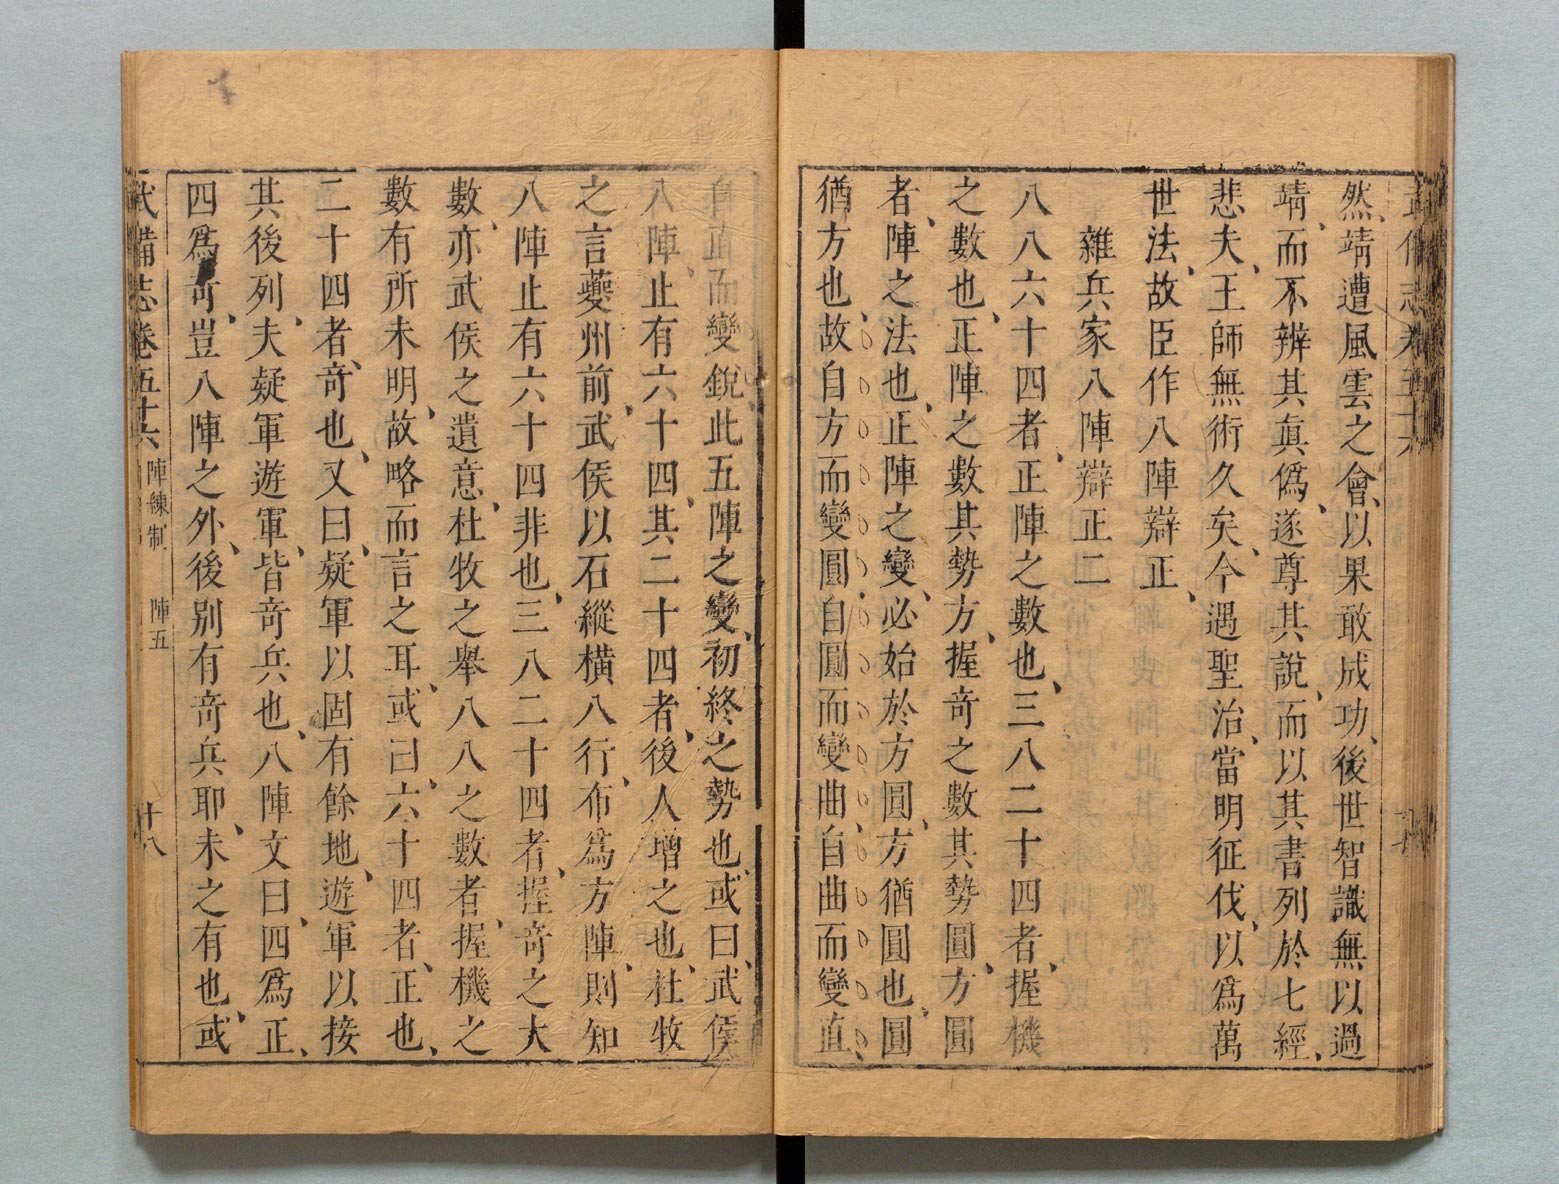 武備志卷五十六
然、靖遭風雲之會、以果敢成功、後世智識無以過
靖、而不辨其眞僞、遂尊其說、而以其書列於七經、
悲夫、王師無術久矣、今遇聖治、當明征伐、以爲萬
世法、故臣作八陣辯正、
雜兵家八陣辯正二
八八六十四者、正陣之數也、三八二十四者、握機
之數也、正陣之數其勢方、握竒之數其勢圓、方圓
者、陣之法也、正陣之變、必始於方圓、方猶圓也、圓
猶方也、故自方而變圓、自圓而變曲、自曲而變直、
自直而變銳、此五陣之變、初終之勢也、或曰、武侯
八陣、止有六十四、其二十四者、後人增之也、杜牧
之言夔州前、武侯以石縱橫八行、布爲方陣、則知
八陣止有六十四非也、三八二十四者、握竒之大
數、亦武侯之遺意、杜牧之舉八八之數者、握機之
數有所未明、故略而言之耳、或曰、六十四者、正也、
二十四者、竒也、又曰、疑軍以固有餘地、遊軍以接
其後列、夫疑軍遊軍、皆竒兵也、八陣文曰、四爲正、
四爲竒、豈八陣之外、後別有竒兵耶、未之有也、或
武備志卷五十六 陣練制 陣五 十八